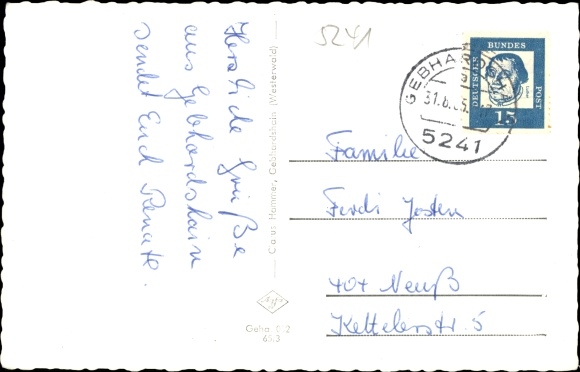 Herzliche Grüße
aus Gebhardshain
sendet Euch Renate.
Carus Hammer, Gebhardshain (Westerwald)
Geha 2
65/3
5241
GEBHARDSHAIN
31.8.65
5241
DEUTSCHE BUNDES POST
15
Familie
Ferdi Josten
404 Neuß
Kettelerstr. 5